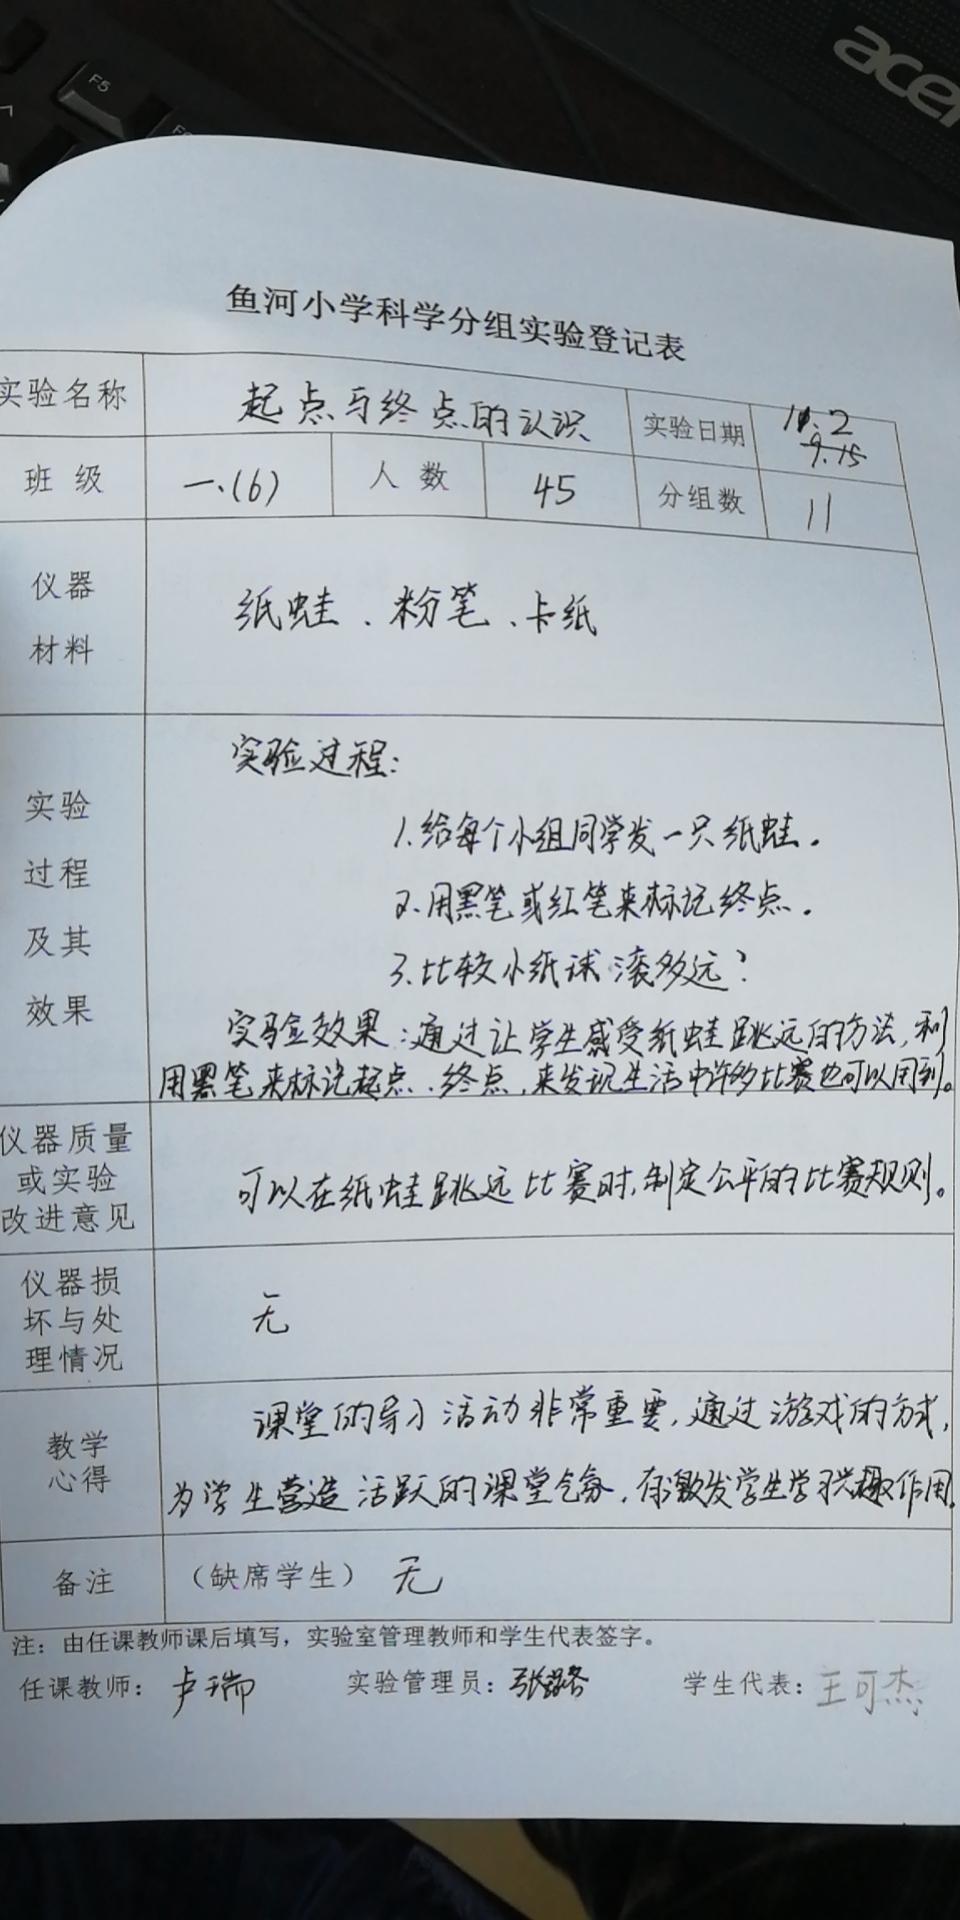 F5
acer
鱼河小学科学分组实验登记表
实验名称 起点与终点的认识 实验日期 11.2
9.15
班 级 一.(6) 人 数 45 分组数 11
仪器
材料
纸蛙、粉笔、卡纸
实验
过程
及其
效果
实验过程:
1.给每个小组同学发一只纸蛙.
2.用黑笔或红笔来标记终点.
3.比较小纸球滚多远?
实验效果:通过让学生感受纸蛙跳远的方法,利
用黑笔来标记起点、终点,来发现生活中许多比赛也可以用到。
仪器质量
或实验
改进意见
可以在纸蛙跳远比赛时,制定公平的比赛规则。
仪器损
坏与处
理情况
无
教学
心得
课堂的导入活动非常重要,通过游戏的方式,
为学生营造活跃的课堂气氛,有激发学生学习兴趣作用.
备注 (缺席学生) 无
注:由任课教师课后填写,实验室管理教师和学生代表签字。
任课教师:卢瑞 实验管理员:张璐 学生代表:王可杰